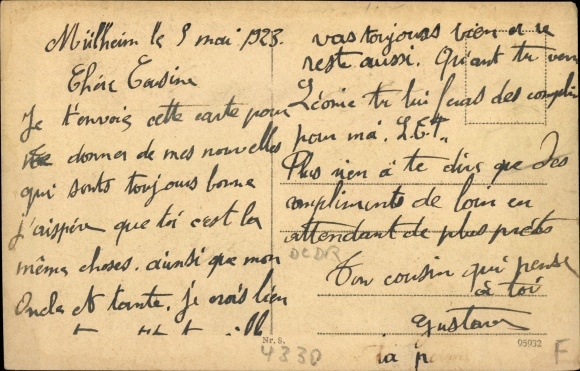 Mülheim le 9 mai 1923.
Chére Cousine
Je t'envois cette carte pour
me donner de mes nouvelles
qui sonts toujours bonne
j'aispére que toi c'est la
même choses. ainsi que mon
Oncle et tante. je crois bien
vas toujours bien et le
reste aussi. Quant tu
Léonie tu lui feras des
pour moi.
Plus rien à te dire que des
compliments de loin en
attendant de plus prêts
Ton cousin qui pense
à toi
Gustave
Nr. 8.
95932
4330
DCDR
F